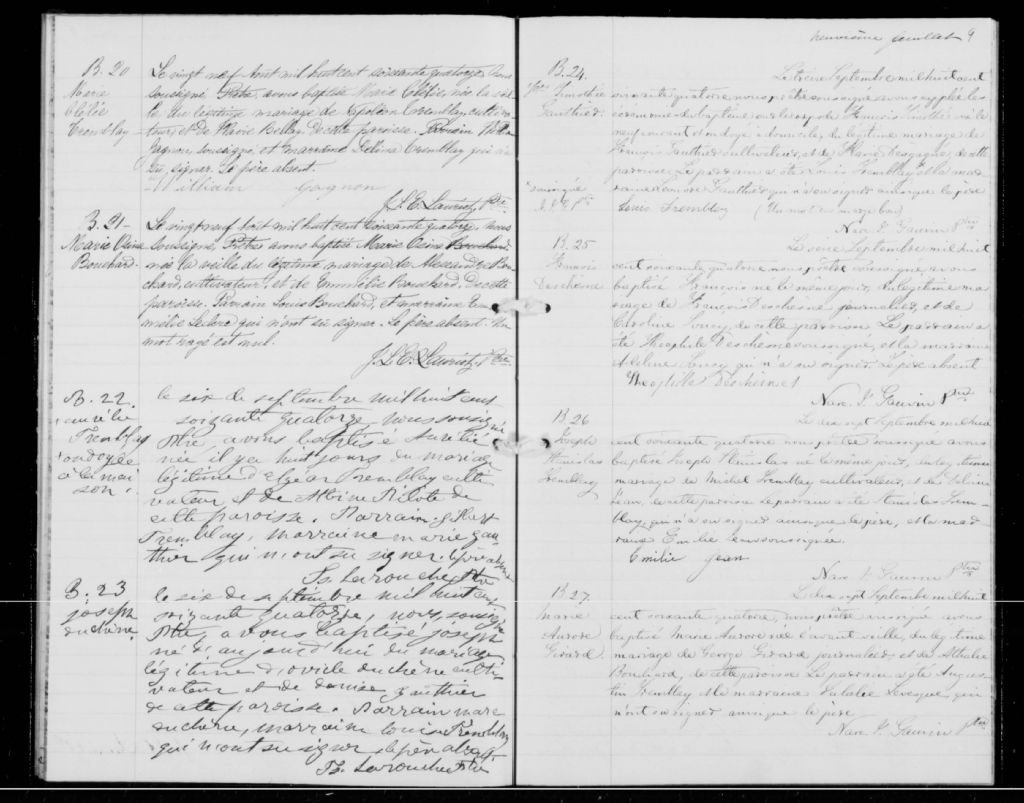 B. 20
Marie
Clélie
Tremblay
Le vingt neuf Aout mil huit cent soixante quatorze, Nous
soussigné Prêtre, avons baptisé Marie Clélie, née la veil-
le du légitime mariage de Napoléon Tremblay, cultiva-
teur, et de Marie Bellay de cette paroisse. Parrain William
Gagnon, soussigné, et marraine Tremblay qui n'a
su signer. Le père absent.
William Gagnon
J. L. E. Lauriot, Ptre
B. 21
Marie Osine
Bouchard
Le vingt neuf Août mil huit cent soixante quatorze, nous
soussigné Prêtre avons baptisé Marie Osine Bouchard
née la veille du légitime mariage de Alexandre Bou-
chard, cultivateur, et de Emmélie Bouchard, de cette
paroisse. Parrain Louis Bouchard, et marraine Em-
mélie Leclerc qui n'ont su signer. Le père absent. Un
mot rayé est nul.
J. L. E. Lauriot, Ptre
B. 22
aurélie
Tremblay
ondoyée
à la mai
son
le six de septembre mil huit cent
soixante quatorze, nous soussigné
Ptre, avons baptisé Aurélie
née il y a huit jours du mariage
légitime d'Elzéar Tremblay culti
vateur et de Albine Pilote de
cette paroisse. Parrain
Tremblay, marraine marie gau
thier qui n'ont su signer. le père absent
Ls. Larouche Ptre
B. 23
joseph
duchêne
le six de septembre mil huit cent
soixante quatorze, nous, soussigné
Ptre, avons baptisé joseph
né d'aujourd'hui du mariage
légitime d'ovide duchêne culti
vateur et de denise gauthier
de cette paroisse. Parrain marc
duchêne, marraine louise Tremblay
qui n'ont su signer, le père absent
Ls. Larouche Ptre
neuvième feuillet 9
B. 24
François Timothée
Gauthier
Le treize Septembre mil huit cent
soixante quatorze, nous prêtre soussigné avons suppléé les
cérémonies du baptême sur le corps de François Timothée né le
neuf courant et ondoyé à domicile, du légitime mariage de
François Gauthier cultivateur, et de Marie Desgagné, de cette
paroisse. Le parrain a été Louis Tremblay et la mar
raine Gauthier qui n'a su signer ainsi que le père
Louis Tremblay (Un mot en marge bon)
Narc. J. Gauvin Ptre
B. 25
François
Deschêne
Le seize Septembre mil huit
cent soixante quatorze nous prêtre soussigné avons
baptisé François né le même jour, du légitime ma
riage de François Deschêne journalier, et de
Caroline Soucy, de cette paroisse. Le parrain a
été Théophile Deschêne soussigné, et la marraine
Adeline Soucy qui n'a su signer. Le père absent
Théophile Deschêne
Narc. J. Gauvin Ptre
B. 26
Joseph
Stanislas
Tremblay
Le dix sept Septembre mil huit
cent soixante quatorze nous prêtre soussigné avons
baptisé Joseph Stanislas né le même jour, du légitime
mariage de Michel Tremblay cultivateur, et de
Jean, de cette paroisse. Le parrain a été Stanislas Trem-
blay, qui n'a su signer ainsi que le père, et la mar
raine Emilie Jean soussignée.
Emilie Jean
Narc. J. Gauvin Ptre
B. 27
Marie
Aurore
Girard
Le dix sept Septembre mil huit
cent soixante quatorze, nous prêtre soussigné avons
baptisé Marie Aurore née l'avant veille, du légitime
mariage de George Girard journalier, et de Athalie
Bouchard, de cette paroisse. Le parrain a été Augus-
tin Tremblay et la marraine Natalie Levesque, qui
n'ont su signer ainsi que le père
Narc. J. Gauvin Ptre